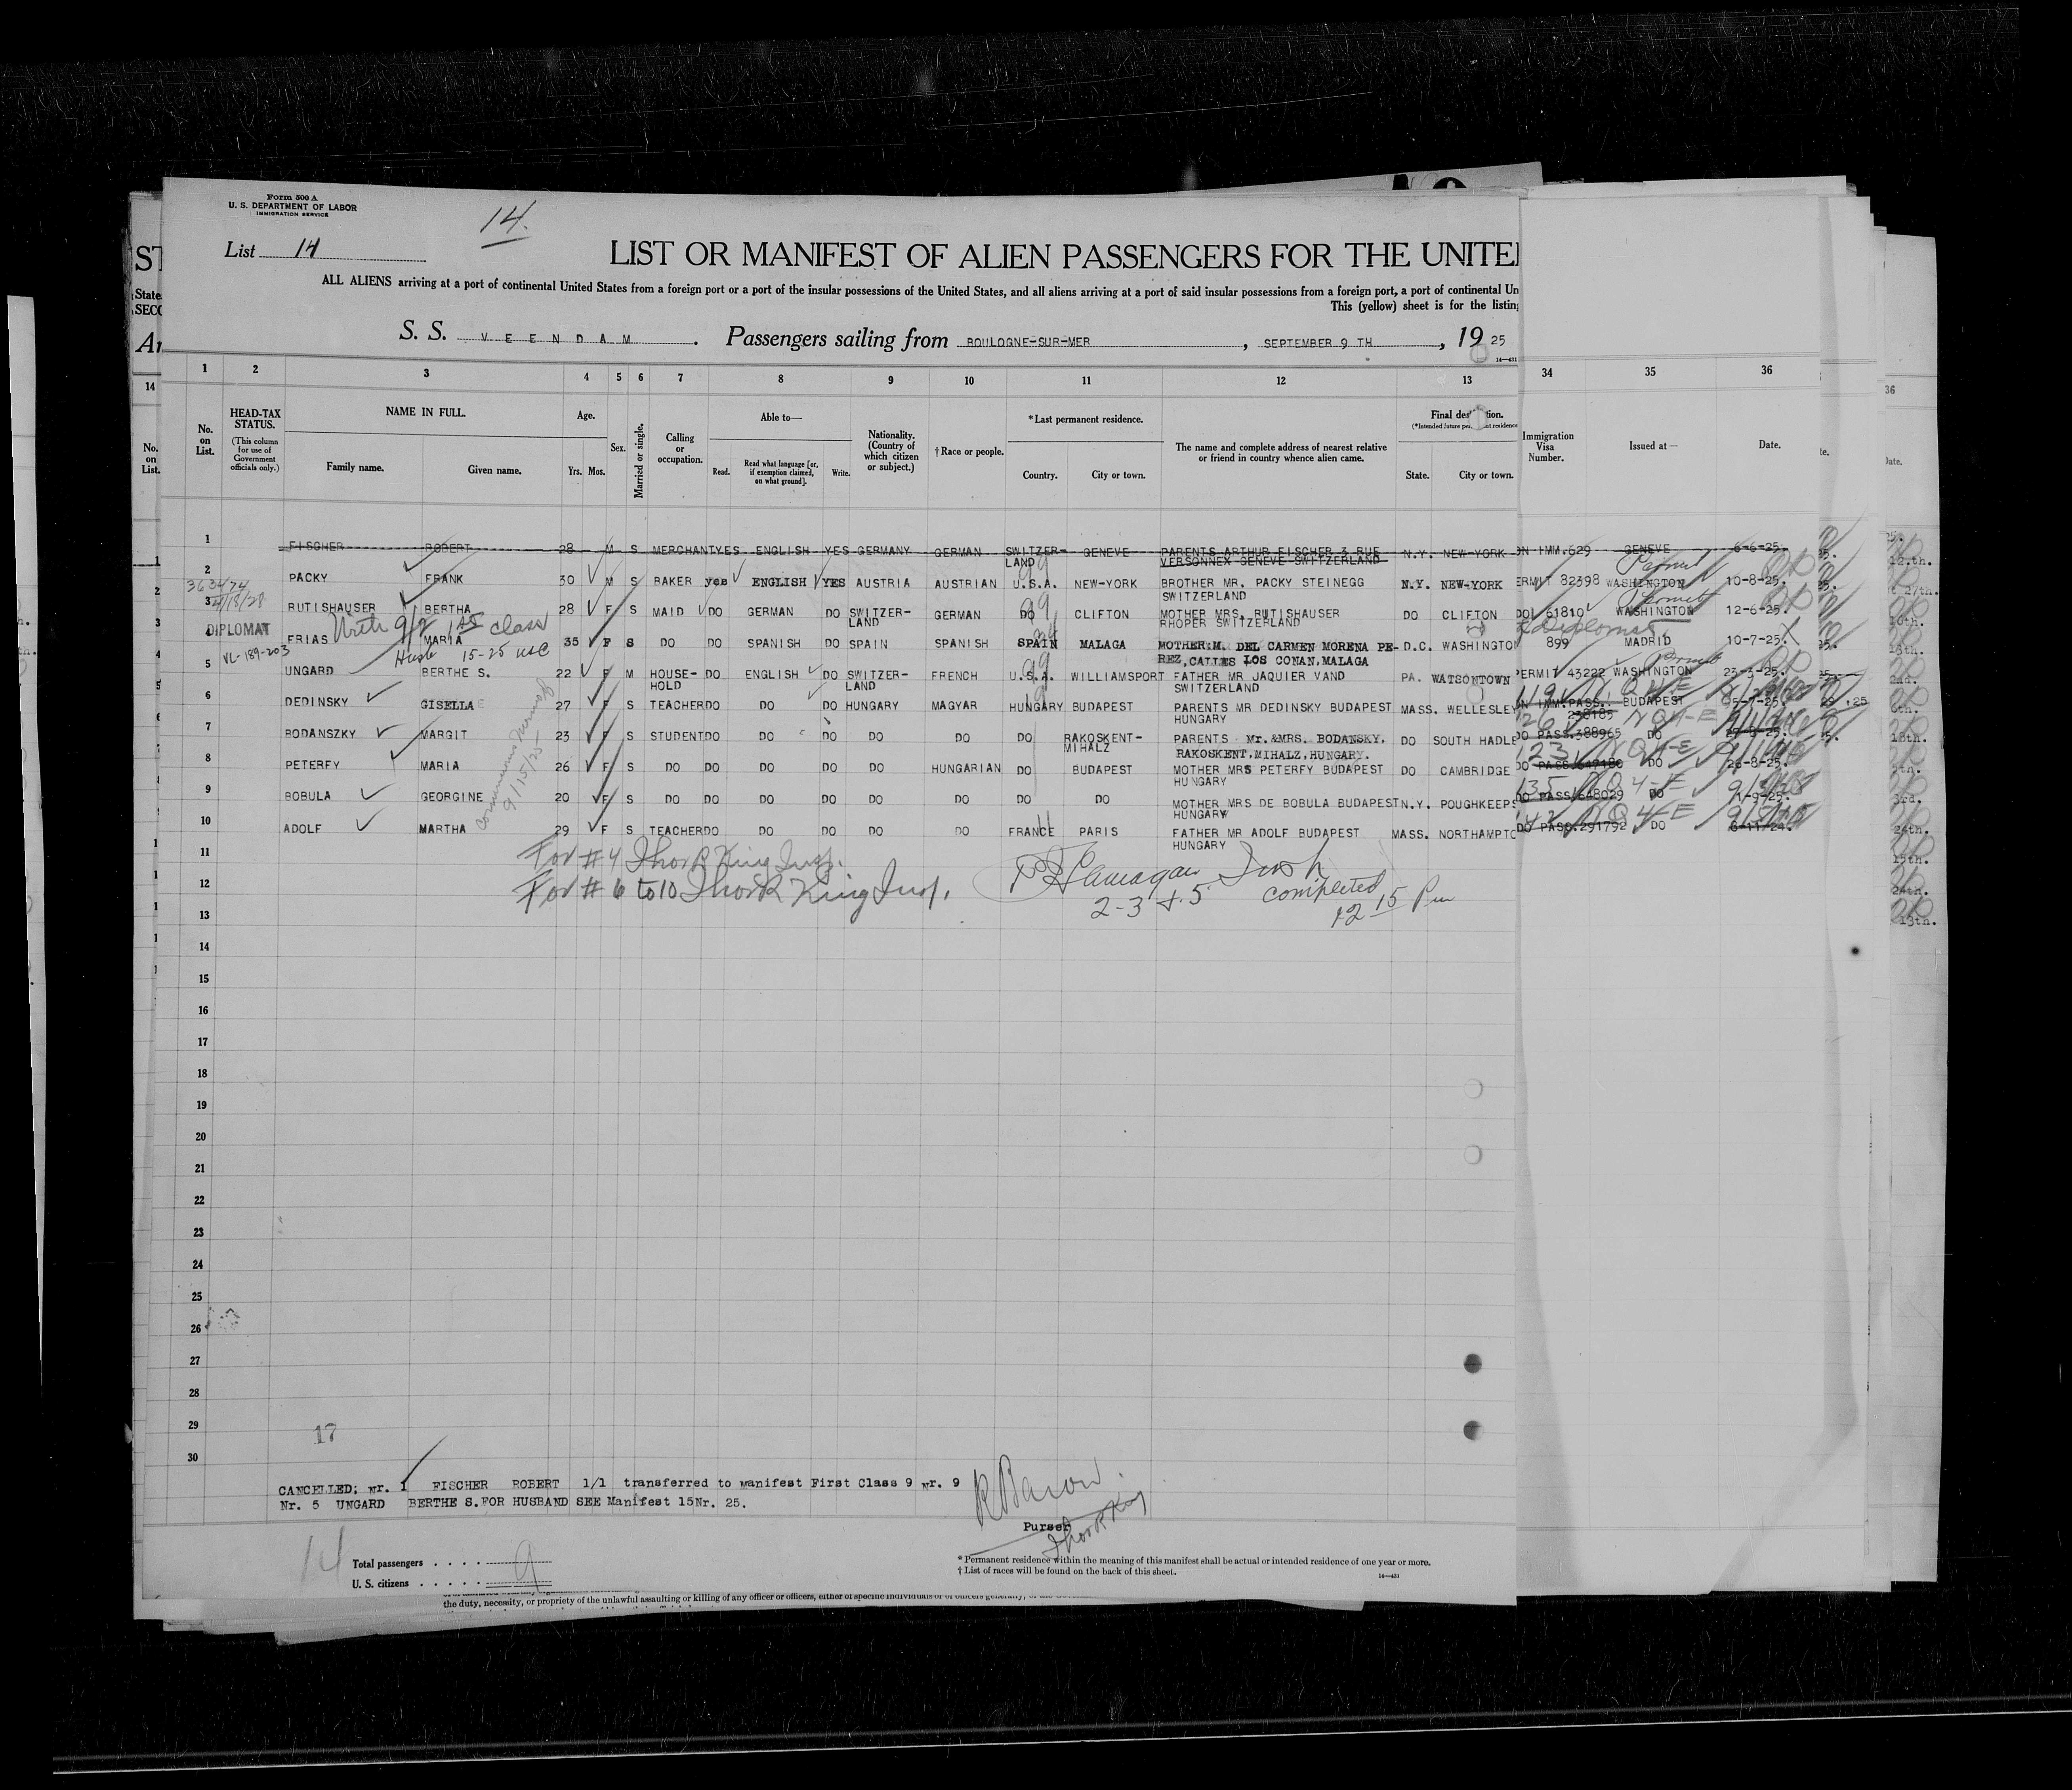 Form 500 A
U. S. DEPARTMENT OF LABOR
IMMIGRATION SERVICE
14.
List 14
LIST OR MANIFEST OF ALIEN PASSENGERS FOR THE UNITE
ALL ALIENS arriving at a port of continental United States from a foreign port or a port of the insular possessions of the United States, and all aliens arriving at a port of said insular possessions from a foreign port, a port of continental Un
This (yellow) sheet is for the listing
S. S. VEENDAM. Passengers sailing from BOULOGNE-SUR-MER, SEPTEMBER 9 TH, 19 25
14—431
1 2 3 4 5 6 7 8 9 10 11 12 13 34 35 36
No. on List.
HEAD-TAX STATUS.
(This column for use of Government officials only.)
NAME IN FULL.
Family name. Given name.
Age.
Yrs. Mos.
Sex.
Married or single.
Calling or occupation.
Able to—
Read. Read what language [or, if exemption claimed, on what ground]. Write.
Nationality. (Country of which citizen or subject.)
†Race or people.
*Last permanent residence.
Country. City or town.
The name and complete address of nearest relative or friend in country whence alien came.
Final destination.
State. City or town.
Immigration Visa Number.
Issued at—
Date.
1 FISCHER ROBERT 28 M S MERCHANT YES ENGLISH YES GERMANY GERMAN SWITZER- GENEVE PARENTS ARTHUR FISCHER 3 RUE N.Y. NEW-YORK ON IMM.629 GENEVE 6-6-25.
LAND VERSONNEX GENEVE SWITZERLAND
2 PACKY FRANK 30 M S BAKER yes ENGLISH YES AUSTRIA AUSTRIAN U.S.A. NEW-YORK BROTHER MR. PACKY STEINEGG N.Y. NEW-YORK ERMIT 82398 WASHINGTON 10-8-25.
SWITZERLAND
Permit
363474
4/18/28
3 RUTISHAUSER BERTHA 28 F S MAID DO GERMAN DO SWITZER- GERMAN DO CLIFTON MOTHER MRS. RUTISHAUSER DO CLIFTON DO 61810 WASHINGTON 12-6-25.
LAND RHOPER SWITZERLAND
DIPLOMAT
With 9/2 1st class
4 FRIAS MARIA 35 F S DO DO SPANISH DO SPAIN SPANISH SPAIN MALAGA MOTHER:M. DEL CARMEN MORENA PE- D.C. WASHINGTO 899 MADRID 10-7-25.
REZ, CALLES LOS CONAN.MALAGA
Diplomat
VL-189-203
Husb 15-25 USC
5 UNGARD BERTHE S. 22 F M HOUSE- DO ENGLISH DO SWITZER- FRENCH U.S.A. WILLIAMSPORT FATHER MR JAQUIER VAND PA. WATSONTOWN PERMIT 43222 WASHINGTON 23-3-25.
HOLD LAND SWITZERLAND
6 DEDINSKY GISELLA 27 F S TEACHER DO DO DO HUNGARY MAGYAR HUNGARY BUDAPEST PARENTS MR DEDINSKY BUDAPEST MASS. WELLESLEY N IMM.PASS. BUDAPEST
HUNGARY 238185
7 BODANSZKY MARGIT 23 F S STUDENT DO DO DO DO DO DO RAKOSKENT- PARENTS Mr.&MRS. BODANSKY, DO SOUTH HADLE DO PASS.388965 DO
MIHALZ RAKOSKENT.MIHALZ.HUNGARY.
8 PETERFY MARIA 26 F S DO DO DO DO DO HUNGARIAN DO BUDAPEST MOTHER MRS PETERFY BUDAPEST DO CAMBRIDGE DO PASS.647180 DO 26-8-25.
HUNGARY
9 BOBULA GEORGINE 20 F S DO DO DO DO DO DO DO DO MOTHER MRS DE BOBULA BUDAPEST N.Y. POUGHKEEPS DO PASS.648029 DO 1-9-25.
HUNGARY
10 ADOLF MARTHA 29 F S TEACHER DO DO DO DO DO FRANCE PARIS FATHER MR ADOLF BUDAPEST MASS. NORTHAMPTO DO PASS.291792 DO 6-11-24.
HUNGARY
9/15/25
11
For #4 Thor R King Insp.
12
For # 6 to 10 Thor R King Insp.
2-3 + 5 completed
12 15 Pm
13
14
15
16
17
18
19
20
21
22
23
24
25
26
27
28
29
30
17
CANCELLED; Nr. 1 FISCHER ROBERT 1/1 transferred to manifest First Class 9 Nr. 9
Nr. 5 UNGARD BERTHE S. FOR HUSBAND SEE Manifest 15Nr. 25.
R Baron
Purser
Thor R King
14
Total passengers . . . . 9
U. S. citizens . . . . .
* Permanent residence within the meaning of this manifest shall be actual or intended residence of one year or more.
† List of races will be found on the back of this sheet.
14—431
the duty, necessity, or propriety of the unlawful assaulting or killing of any officer or officers, either of specific individuals or of officers generally, of the